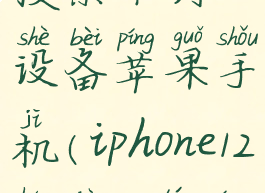 shè bèi píng guǒ shǒu
设备苹果手
jī
机(iphone12